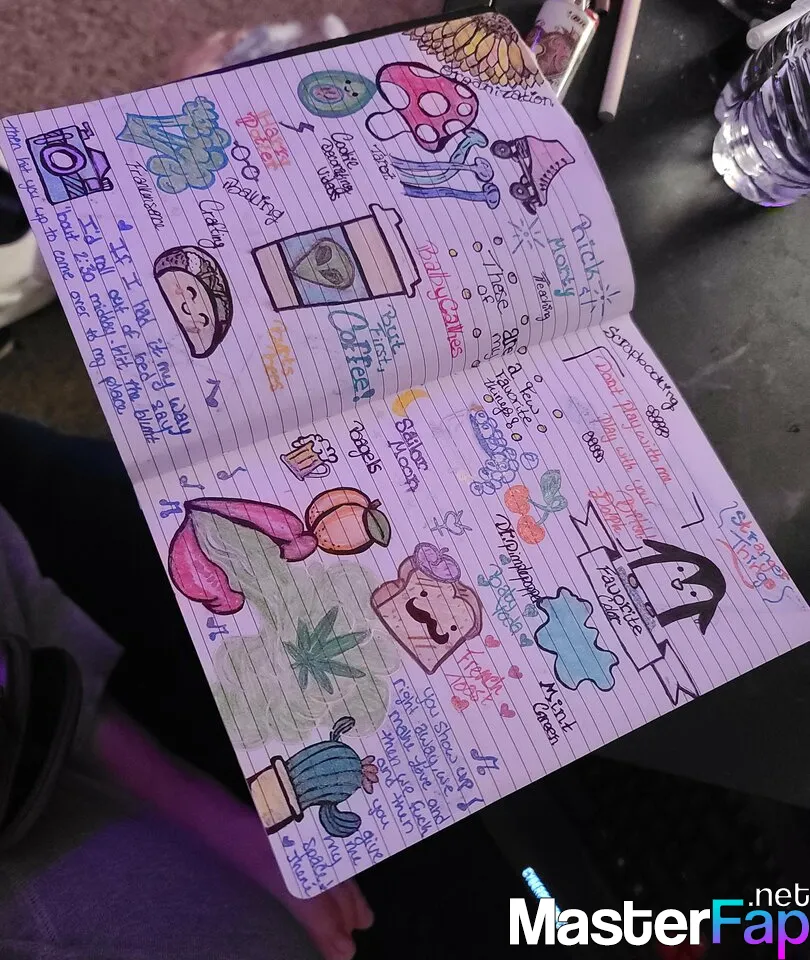 Organization
Cookie
Decorating
Videos
Tarot
Harry
Potter
Baking
Frankinsense
Crafting
Rick &
Morty
Reading
Bath
But
First,
Coffee!
These are a few
of my favorite
things
then hit you up to come over to my place
If I had it my way
I'd roll out of bed say
'bout 2:30 midday hit the blunt
Scrapbooking
Don't Play with me
Play with your
Stranger
Things
Sailor
Moon
Bagels
Dr. Pimplepopper
babyyoda
Favorite
Color
Mint
Green
French
Toast
You show up
right away we
make love and
then we fuck
and then
you give
me
my
space
there
MasterFap
.net